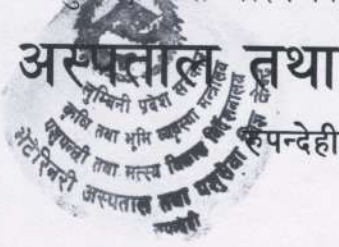 अस्पताल तथा
रुपन्देही
लुम्बिनी प्रदेश सरकार
कृषि तथा भूमि व्यवस्था मन्त्रालय
पशुपन्छी तथा मत्स्य विकास निर्देशनालय
भेटेरिनरी अस्पताल तथा पशुसेवा
रुपन्देही